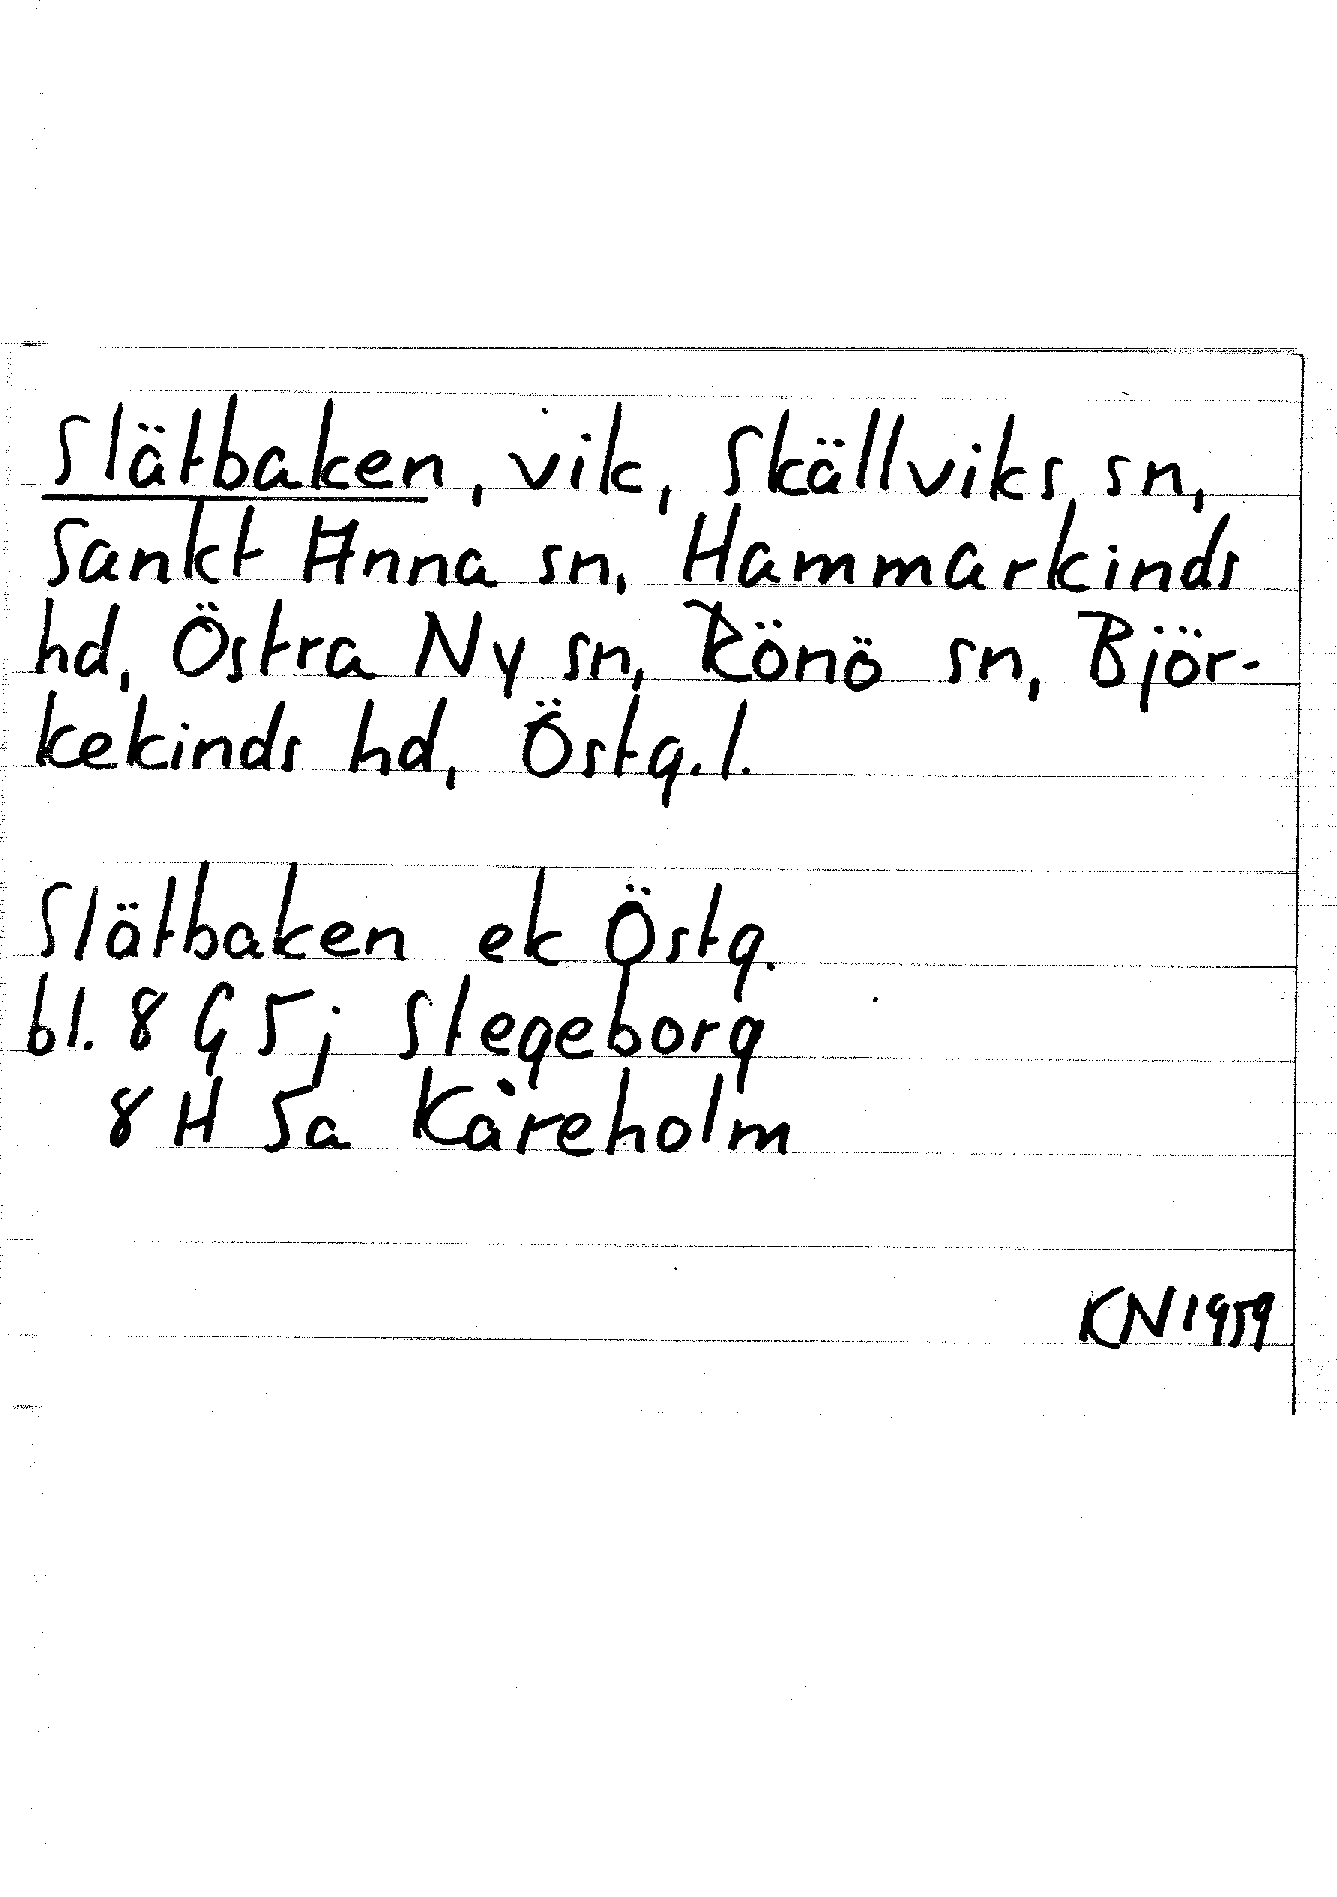 Slätbaken, vik, Skällviks sn,
Sankt Anna sn, Hammarkinds
hd, Östra Ny sn, Rönö sn, Björ-
kekinds hd, Östg. l.
Slätbaken ek Östg.
bl. 8 G 5j Stegeborg
8 H 5a Kåreholm
KN 1959